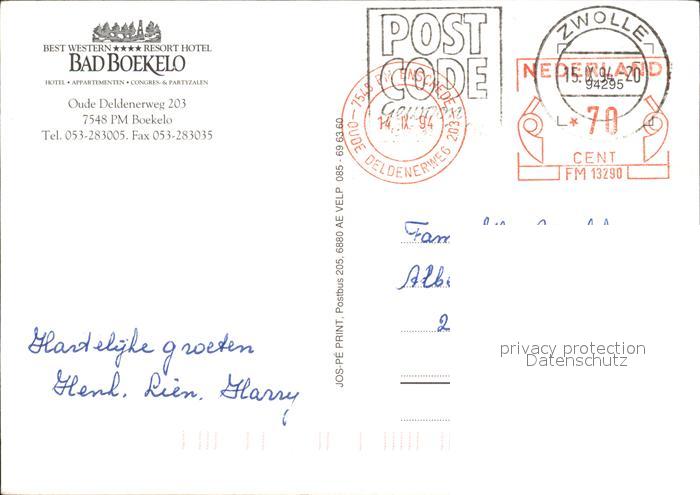 BEST WESTERN ★★★★ RESORT HOTEL
BAD BOEKELO
HOTEL • APPARTEMENTEN • CONGRES- & PARTYZALEN
Oude Deldenerweg 203
7548 PM Boekelo
Tel. 053-283005. Fax 053-283035
Hartelijke groeten
Henk. Lien. Harry
JOS-PÉ PRINT. Postbus 205, 6880 AE VELP 085 - 69 63 60
POST
CODE
7548 PM ENSCHEDE
14. IX. 94
OUDE DELDENERWEG 203
ZWOLLE
15. IX. 94.-20
94295
NEDERLAND
* 70
CENT
FM 13290
Fam
Alb
2
privacy protection
Datenschutz